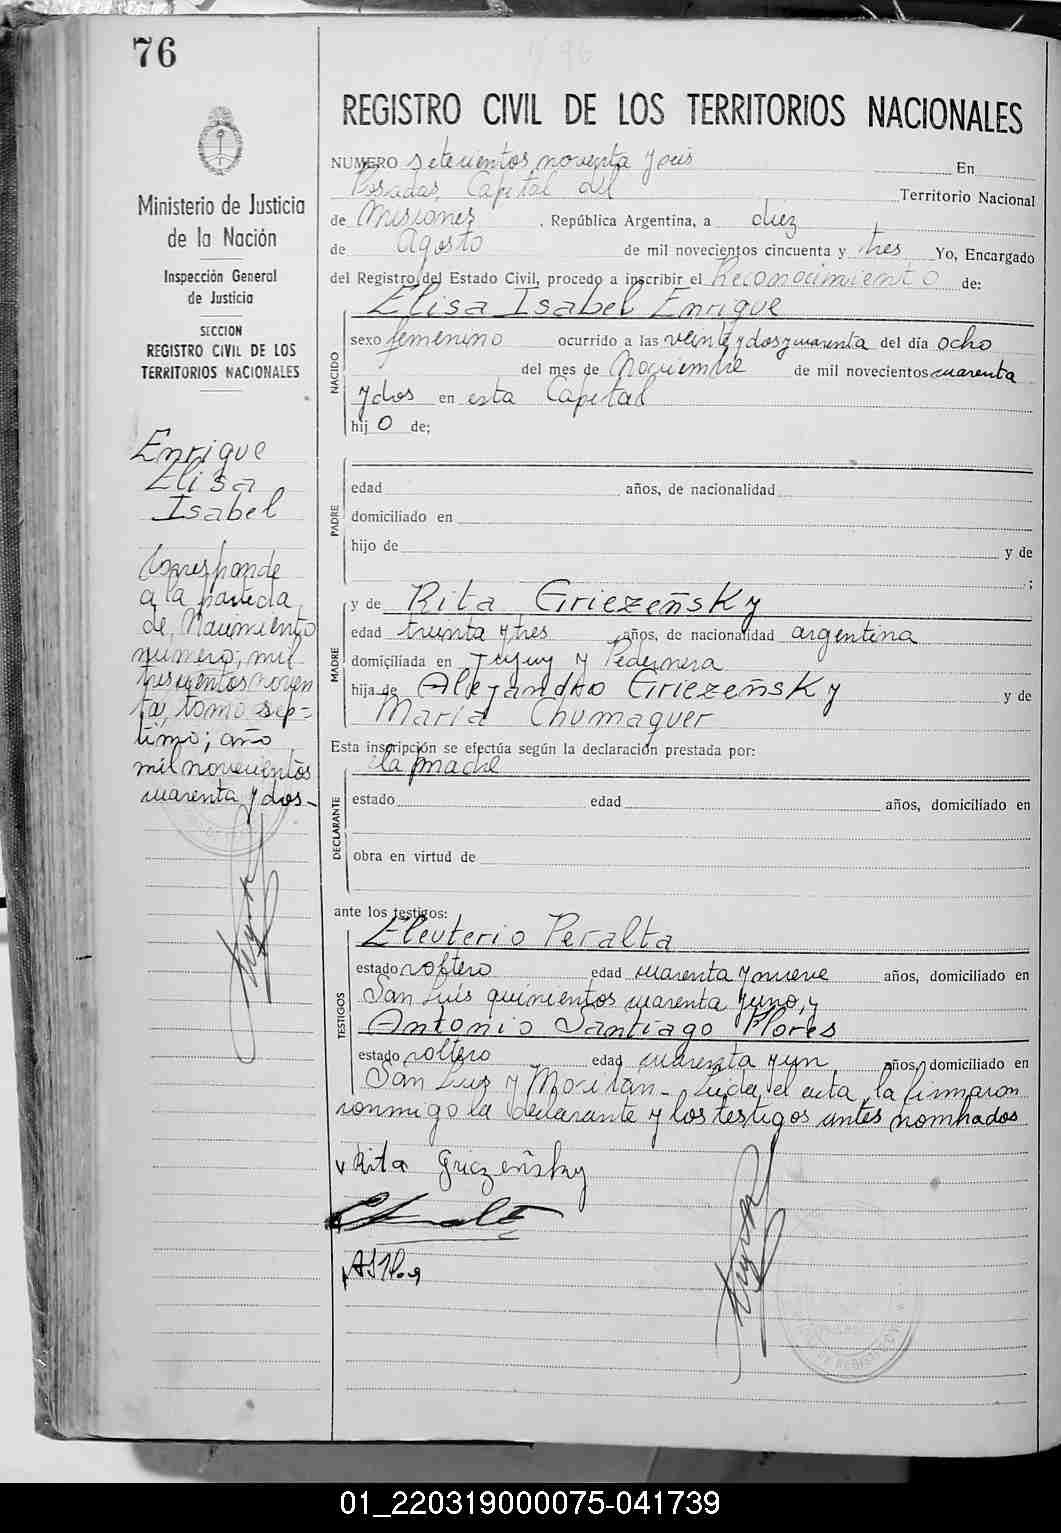 76
REGISTRO CIVIL DE LOS TERRITORIOS NACIONALES
Ministerio de Justicia
de la Nación
Inspección General
de Justicia
SECCION
REGISTRO CIVIL DE LOS
TERRITORIOS NACIONALES
Enrique
Elisa
Isabel
Corresponde
a la partida
de, Nacimiento
número; mil
trescientos noven
ta, tomo sép=
timo; año
mil novecientos
cuarenta y dos-
NUMERO setecientos noventa y seis En
Posadas, Capital del Territorio Nacional
de Misiones, República Argentina, a diez
de Agosto de mil novecientos cincuenta y tres Yo, Encargado
del Registro del Estado Civil, procedo a inscribir el Reconocimiento de:
Elisa Isabel Enrique
NACIDO
sexo femenino ocurrido a las veinte y dos y cuarenta del día ocho
del mes de Noviembre de mil novecientos cuarenta
y dos en esta Capital
hij o de;
PADRE
edad años, de nacionalidad
domiciliado en
hijo de y de
;
MADRE
y de Rita Griezeñsky
edad treinta y tres años, de nacionalidad argentina
domiciliada en Jujuy y Pedernera
hija de Alejandro Griezeñsky y de
María Chumaguer
Esta inscripción se efectúa según la declaración prestada por:
la madre
DECLARANTE
estado edad años, domiciliado en
obra en virtud de
ante los testigos:
TESTIGOS
Eleuterio Peralta
estado soltero edad cuarenta y nueve años, domiciliado en
San Luis quinientos cuarenta y uno, y
Antonio Santiago Flores
estado soltero edad cuarenta y un años, domiciliado en
San Luis y Moritan- Leída el acta, la firmaron
conmigo la declarante y los testigos antes nombrados
Rita Griezeñsky
01_220319000075-041739